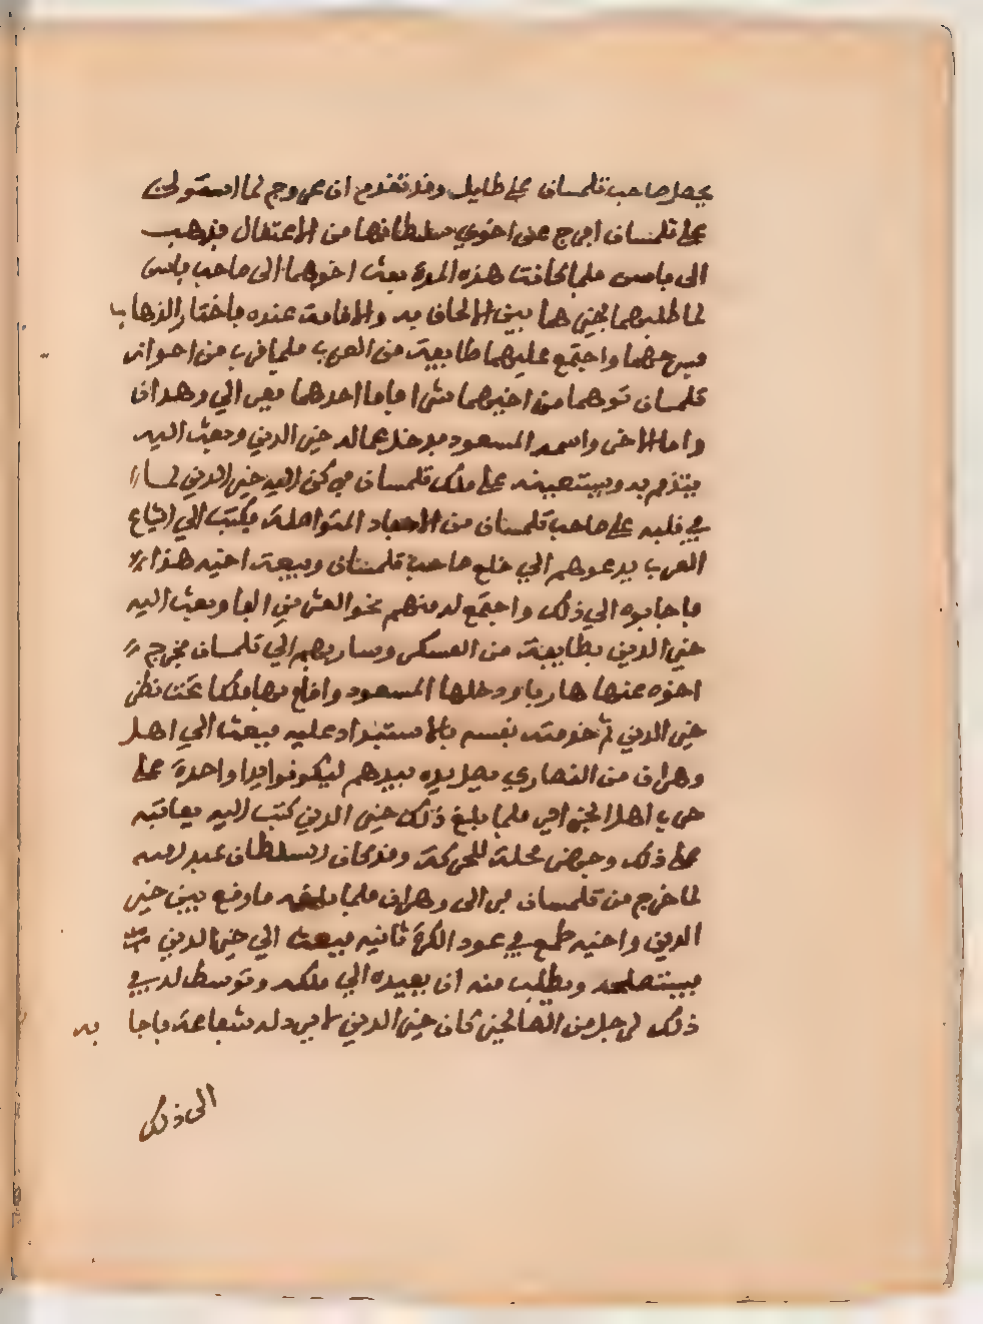 يحصل صاحب تلمسان على طايل وقد تقدم ان عروج لما استولى
على تلمسان اخرج عن اخوي سلطانها من الاعتقال فذهب
الى باس فلما كانت هذه المدة بعث اخوهما الى صاحب باس
لما طلبهما بخيرهما بين الالحاق به والاقامة عنده فاختار الذهاب
فسرحهما واجتمع عليهما طايفة من العرب فلما قرب من احواز
تلمسان توهما من اخيهما شرا فاما احدهما ففر الي وهران
واما الاخر واسمه المسعود فدخل عمالة خير الدين وبعث اليه
يتذمم به ويستعينه على ملك تلمسان فركن اليه خير الدين لما
في قلبه على صاحب تلمسان من الاحقاد المتواصلة فكتب الي اشياع
العرب يدعوهم الي خلع صاحب تلمسان وبيعة اخيه هذا
فاجابوه الي ذلك واجتمع له منهم نحو العشرين الفا وبعث اليه
خير الدين بطايفة من العسكر وسار بهم الي تلمسان فخرج
اخوه عنها هاربا ودخلها المسعود واقام بها ملكا تحت نظر
خير الدين ثم حدثته نفسه بالاستبداد عليه فبعث الي اهل
وهران من النصاري يصل يده بيدهم ليكونوا يدا واحدة على
حرب اهل الجزاير فلما بلغ ذلك خير الدين كتب اليه يعاتبه
على ذلك وجهز محلة للحركة وقد كان السلطان عبد الله
لما خرج من تلمسان فر الى وهران فلما بلغه ما وقع بين خير
الدين واخيه طمع في عود الكرة ثانيه فبعث الي خير الدين
يستصلحه ويطلب منه ان يعيده الي ملكه وتوسط له في
ذلك رجل من الصالحين كان خير الدين لا يرد له شفاعة فاجا به
الى ذلك